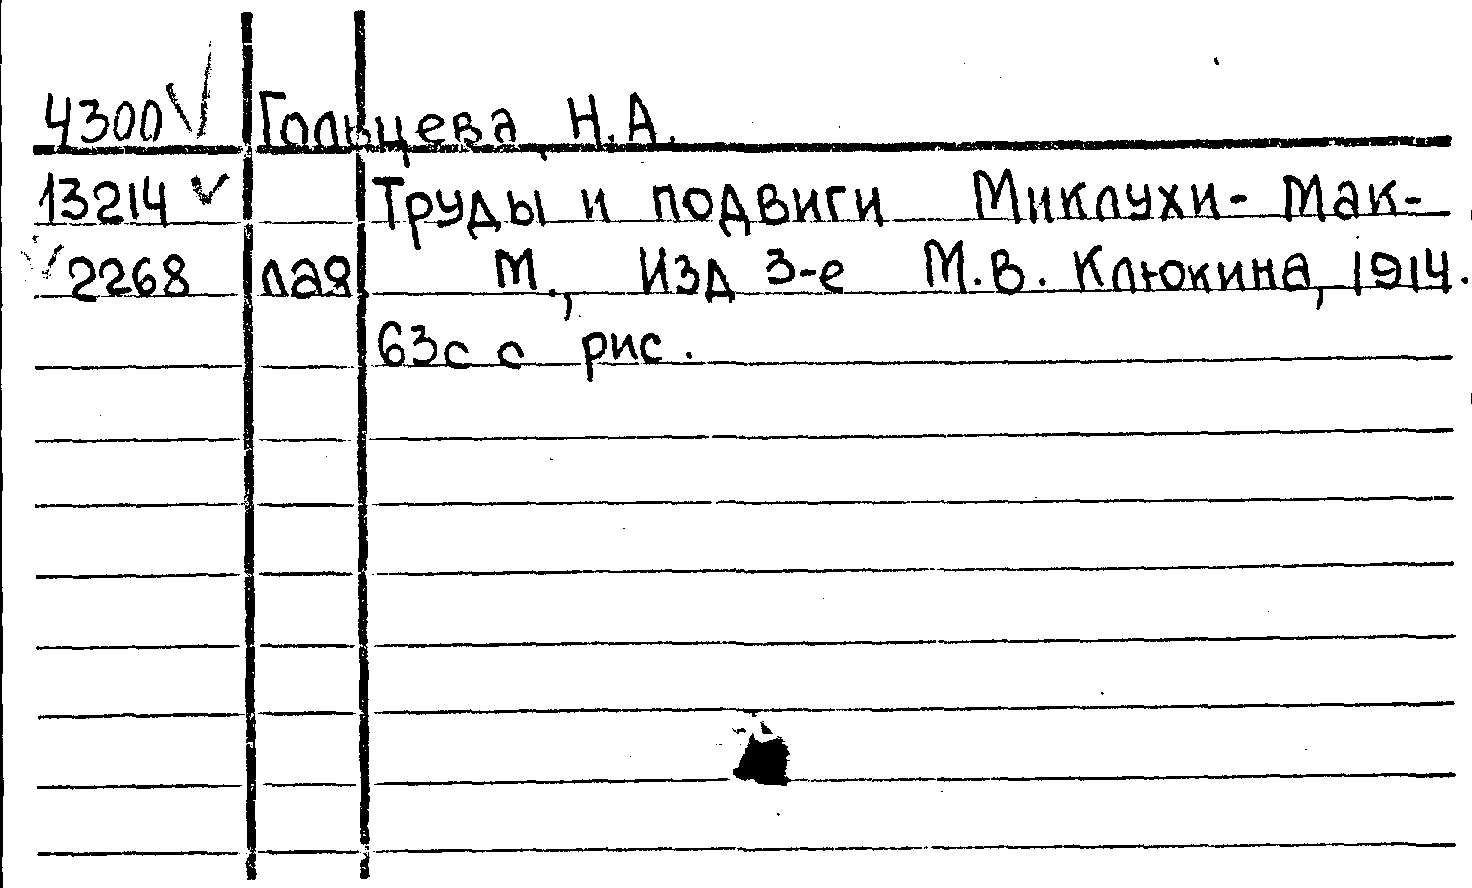 4300 Гольцева Н.А.
13214 Труды и подвиги Миклухи-Мак-
2268 лая М., Изд 3-е М.В. Клюкина, 1914.
63с с рис.